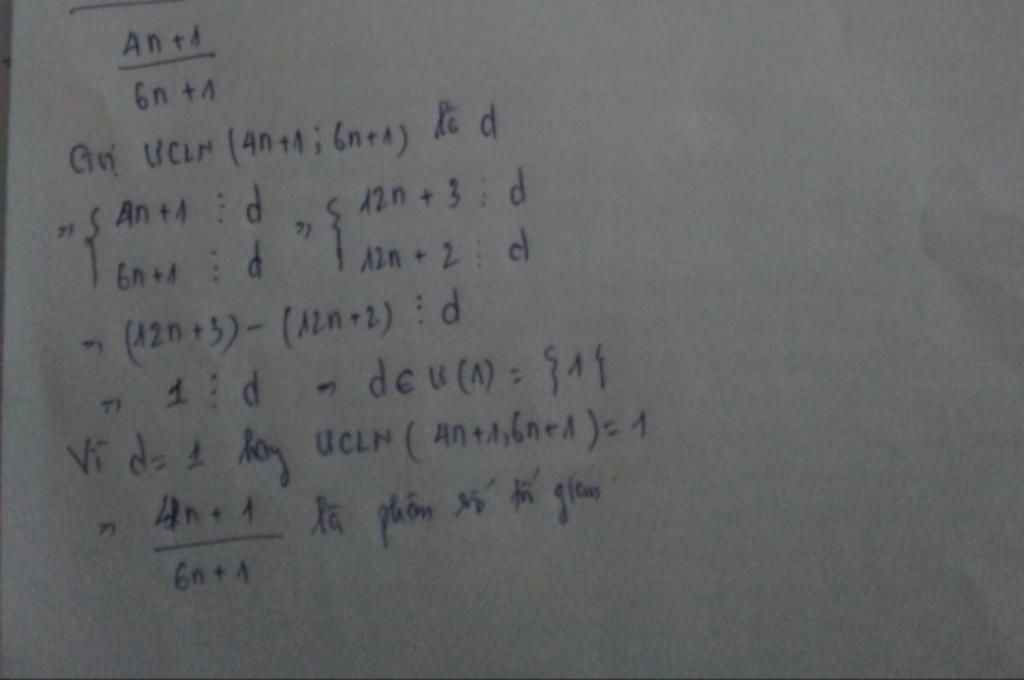 4n+1
6n+1
Gọi ƯCLN (4n+1; 6n+1) là d
=> { 4n+1 ⋮ d => { 12n + 3 ⋮ d
6n+1 ⋮ d 12n + 2 ⋮ d
=> (12n+3) - (12n+2) ⋮ d
=> 1 ⋮ d => d ∈ Ư(1) = {1}
Vì d = 1 hay ƯCLN ( 4n+1, 6n+1 ) = 1
=> 4n + 1 là phân số tối giản
6n + 1